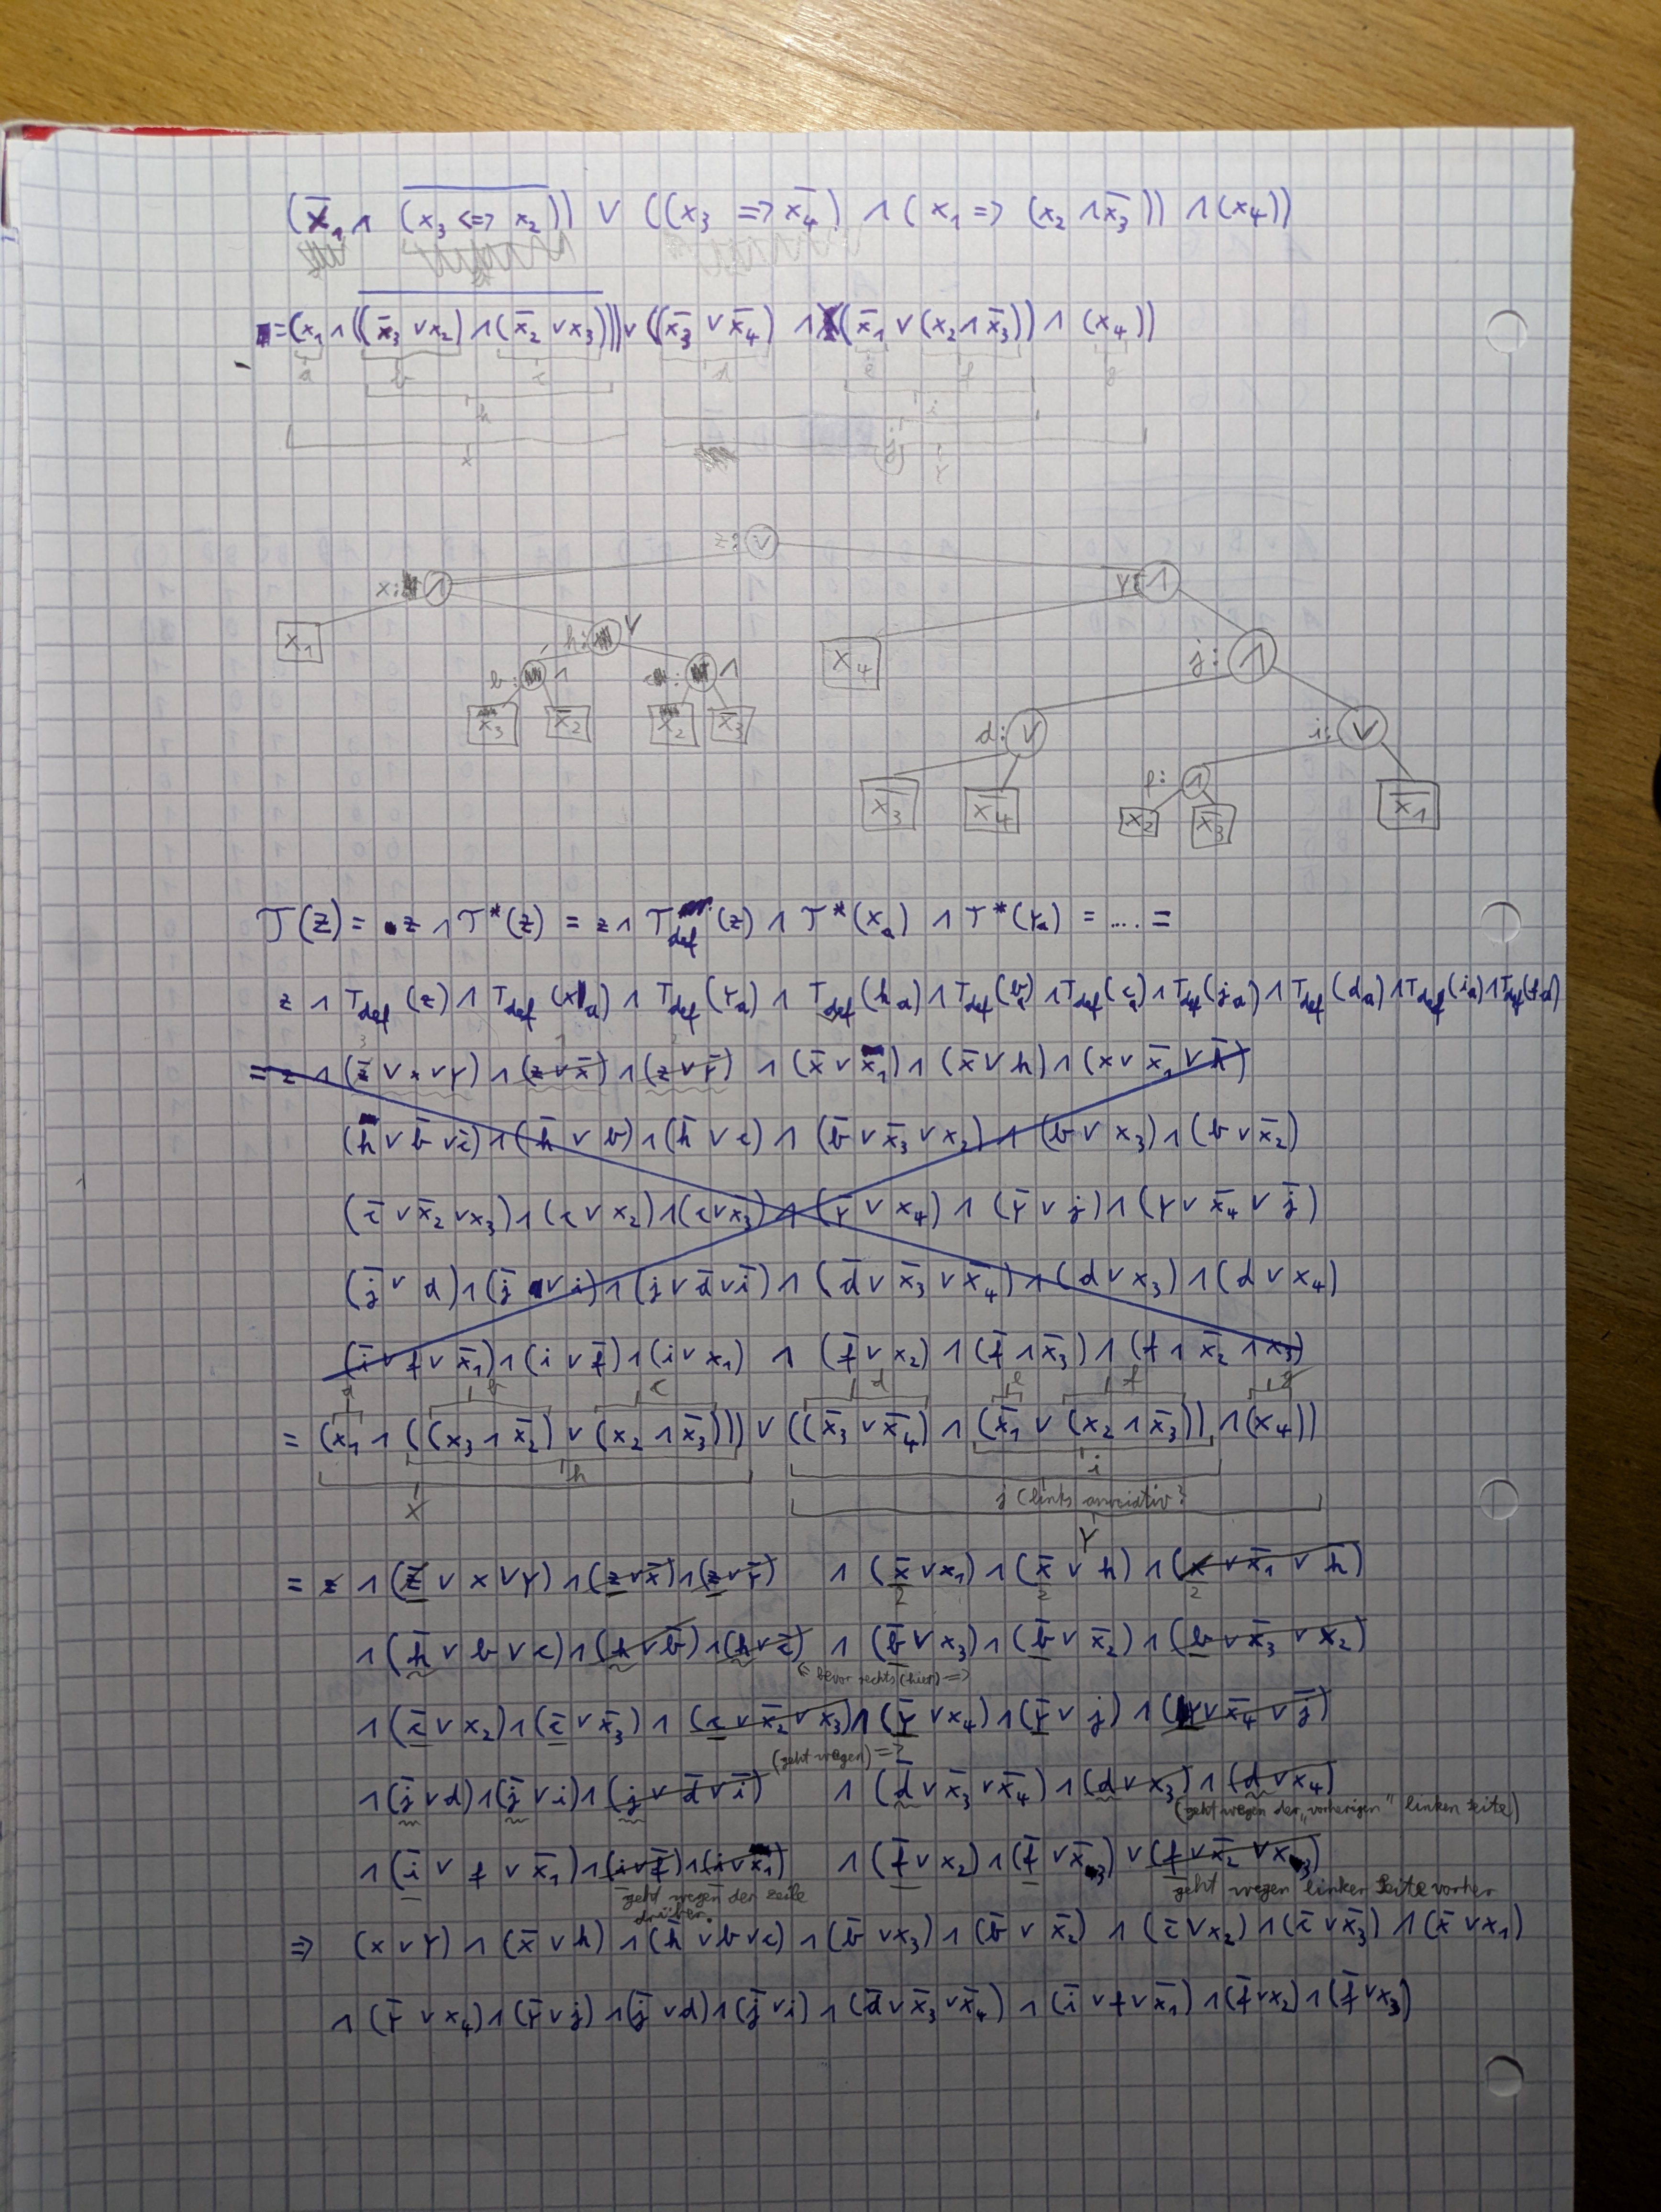 (x̅₁ ∧ (x₃ <=> x₂)̅) ∨ ((x₃ => x̅₄) ∧ (x₁ => (x₂ ∧ x̅₃)) ∧ (x₄))
= (x₁ ∧ ((x̅₃ ∨ x₂) ∧ (x̅₂ ∨ x₃))̅) ∨ ((x̅₃ ∨ x̅₄) ∧ (x̅₁ ∨ (x₂ ∧ x̅₃)) ∧ (x₄))
a b c d e f g
h i
j
x Y
z: ∨
x: ∧ Y: ∧
x₁ h: ∨ x₄ j: ∧
b: ∧ c: ∧
x₃ x̅₂ x₂ x̅₃ d: ∨ i: ∨
f: ∧
x̅₃ x̅₄ x₂ x̅₃ x̅₁
T(z) = z ∧ T*(z) = z ∧ T_def(z) ∧ T*(x_a) ∧ T*(Y_a) = .... =
z ∧ T_def(z) ∧ T_def(x_a) ∧ T_def(Y_a) ∧ T_def(h_a) ∧ T_def(b_a) ∧ T_def(c_a) ∧ T_def(j_a) ∧ T_def(d_a) ∧ T_def(i_a) ∧ T_def(f_a)
= z ∧ (z̅ ∨ x ∨ Y) ∧ (z ∨ x̅) ∧ (z ∨ Y̅) ∧ (x̅ ∨ x₁) ∧ (x̅ ∨ h) ∧ (x ∨ x̅₁ ∨ h̅)
(h ∨ b̅ ∨ c̅) ∧ (h̅ ∨ b) ∧ (h̅ ∨ c) ∧ (b̅ ∨ x̅₃ ∨ x₂) ∧ (b ∨ x₃) ∧ (b ∨ x̅₂)
(c̅ ∨ x̅₂ ∨ x₃) ∧ (c ∨ x₂) ∧ (c ∨ x̅₃) ∧ (Y̅ ∨ x₄) ∧ (Y̅ ∨ j) ∧ (Y ∨ x̅₄ ∨ j̅)
(j̅ ∨ d) ∧ (j̅ ∨ i) ∧ (j ∨ d̅ ∨ i̅) ∧ (d̅ ∨ x̅₃ ∨ x̅₄) ∧ (d ∨ x₃) ∧ (d ∨ x₄)
(i̅ ∨ f ∨ x̅₁) ∧ (i ∨ f̅) ∧ (i ∨ x₁) ∧ (f̅ ∨ x₂) ∧ (f̅ ∧ x̅₃) ∧ (f ∧ x̅₂ ∧ x₃)
a b c d e f g
= (x₁ ∧ ((x₃ ∧ x̅₂) ∨ (x₂ ∧ x̅₃))) ∨ ((x̅₃ ∨ x̅₄) ∧ (x̅₁ ∨ (x₂ ∧ x̅₃)) ∧ (x₄))
h i
X j (links assoziativ?
Y
= z ∧ (z̅ ∨ x ∨ Y) ∧ (z ∨ x̅) ∧ (z ∨ Y̅) ∧ (x̅ ∨ x₁) ∧ (x̅ ∨ h) ∧ (x ∨ x̅₁ ∨ h̅)
2 2 2
∧ (h̅ ∨ b ∨ c) ∧ (h ∨ b̅) ∧ (h ∨ c̅) ∧ (b̅ ∨ x₃) ∧ (b̅ ∨ x̅₂) ∧ (b ∨ x̅₃ ∨ x₂)
(<= bevor rechts (hier) =>
∧ (c̅ ∨ x₂) ∧ (c̅ ∨ x̅₃) ∧ (c ∨ x̅₂ ∨ x₃) ∧ (Y̅ ∨ x₄) ∧ (Y̅ ∨ j) ∧ (Y ∨ x̅₄ ∨ j̅)
(geht wegen) =>
∧ (j̅ ∨ d) ∧ (j̅ ∨ i) ∧ (j ∨ d̅ ∨ i̅) ∧ (d̅ ∨ x̅₃ ∨ x̅₄) ∧ (d ∨ x₃) ∧ (d ∨ x₄)
(geht wegen der „vorherigen" linken Seite)
∧ (i̅ ∨ f ∨ x̅₁) ∧ (i ∨ f̅) ∧ (i ∨ x₁) ∧ (f̅ ∨ x₂) ∧ (f̅ ∨ x̅₃) ∨ (f ∨ x̅₂ ∨ x₃)
geht wegen der Zeile drüber. geht wegen linker Seite vorher
⇒ (x ∨ Y) ∧ (x̅ ∨ h) ∧ (h̅ ∨ b ∨ c) ∧ (b̅ ∨ x₃) ∧ (b̅ ∨ x̅₂) ∧ (c̅ ∨ x₂) ∧ (c̅ ∨ x̅₃) ∧ (x̅ ∨ x₁)
∧ (Y̅ ∨ x₄) ∧ (Y̅ ∨ j) ∧ (j̅ ∨ d) ∧ (j̅ ∨ i) ∧ (d̅ ∨ x̅₃ ∨ x̅₄) ∧ (i̅ ∨ f ∨ x̅₁) ∧ (f̅ ∨ x₂) ∧ (f̅ ∨ x̅₃)